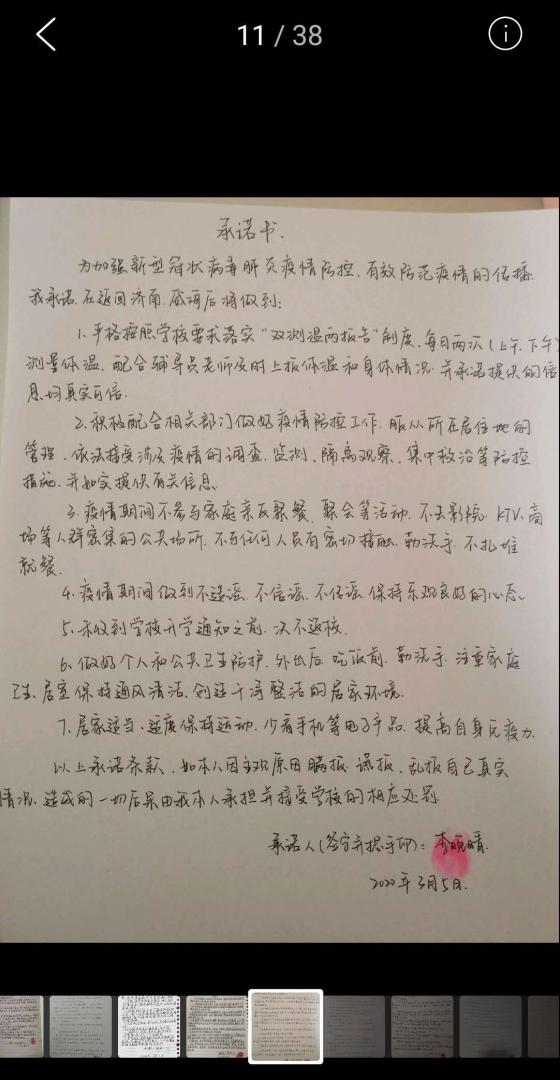 11 / 38
承诺书.
为加强新型冠状病毒肺炎疫情防控,有效防范疫情的传播
我承诺,在返回济南,后将做到:
1.严格按照学校要求落实“双测温两报告”制度,每日两次(上午.下午)
测量体温,配合辅导员老师及时上报体温和身体情况,并承诺提供的信
息均真实可信.
2.积极配合相关部门做好疫情防控工作,服从所在居住地的
管理,依法接受涉及疫情的调查、监测、隔离观察、集中救治等防控
措施,并如实提供有关信息.
3.疫情期间不参与家庭亲友聚餐、聚会等活动,不去影院、KTV、商
场等人群密集的公共场所,不与任何人员有密切接触,勤洗手,不扎堆
就餐.
4.疫情期间做到不造谣、不信谣、不传谣,保持乐观良好的心态.
5.未收到学校开学通知之前,决不返校.
6.做好个人和公共卫生防护,外出后、吃饭前,勤洗手,注重家庭
卫生,居室保持通风清洁,创造干净整洁的居家环境.
7.居家适当、适度保持运动,少看手机等电子产品,提高自身免疫力.
以上承诺条款,如本人因主观原因瞒报、谎报、乱报自己真实
情况,造成的一切后果由我本人承担并接受学校的相应处罚.
承诺人(签字并摁手印):李晓晴.
2020年3月5日.